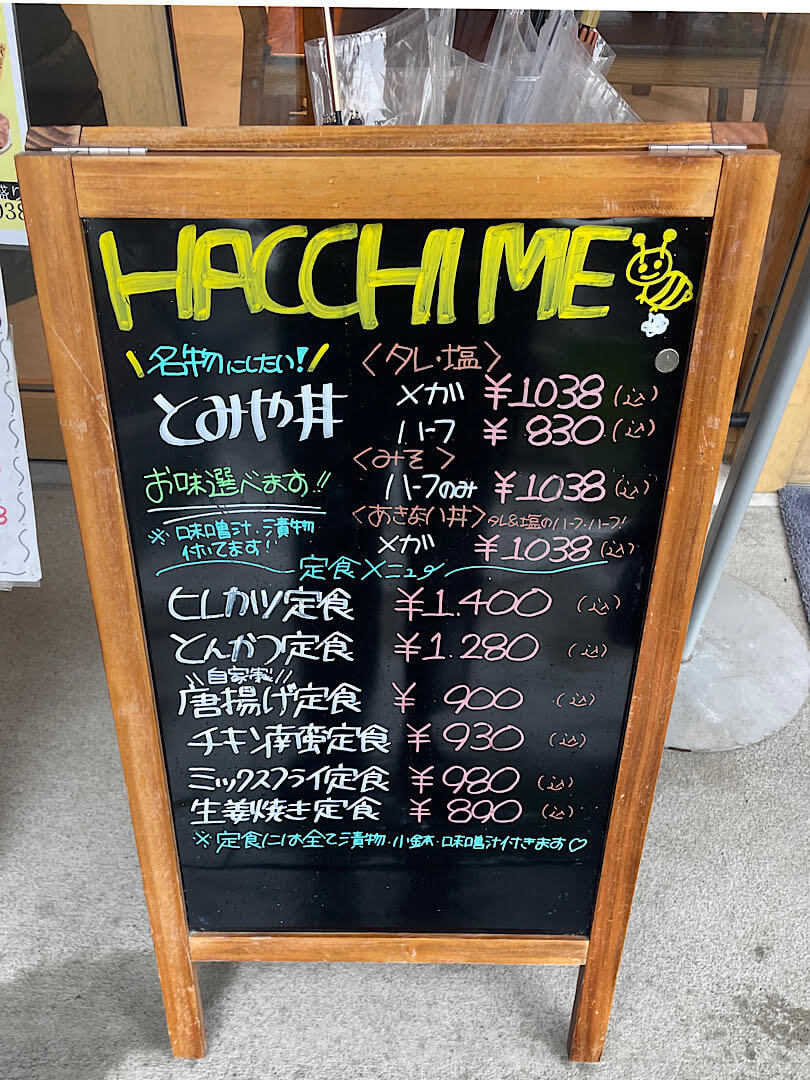 HACCHI ME
名物にしたい!
とみや丼
〈タレ・塩〉
メガ ¥1038(込)
ハーフ ¥830(込)
お味選べます!!
〈みそ〉
ハーフのみ ¥1038(込)
※味噌汁・漬物
付いてます!
〈あきない丼〉タレ&塩のハーフ・ハーフ!
メガ ¥1038(込)
定食メニュー
ヒレカツ定食 ¥1.400(込)
とんかつ定食 ¥1.280(込)
自家製
唐揚げ定食 ¥900(込)
チキン南蛮定食 ¥930(込)
ミックスフライ定食 ¥980(込)
生姜焼き定食 ¥890(込)
※定食には全て漬物・小鉢・味噌汁付きます♡